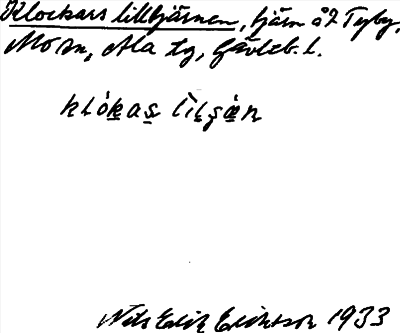 Klockars lilltjärnen, tjärn å? Tyby,
Mo sn, Ala tg, Gävleb. l.
klókas lilʒǽn
Nils Erik Eriksson 1933